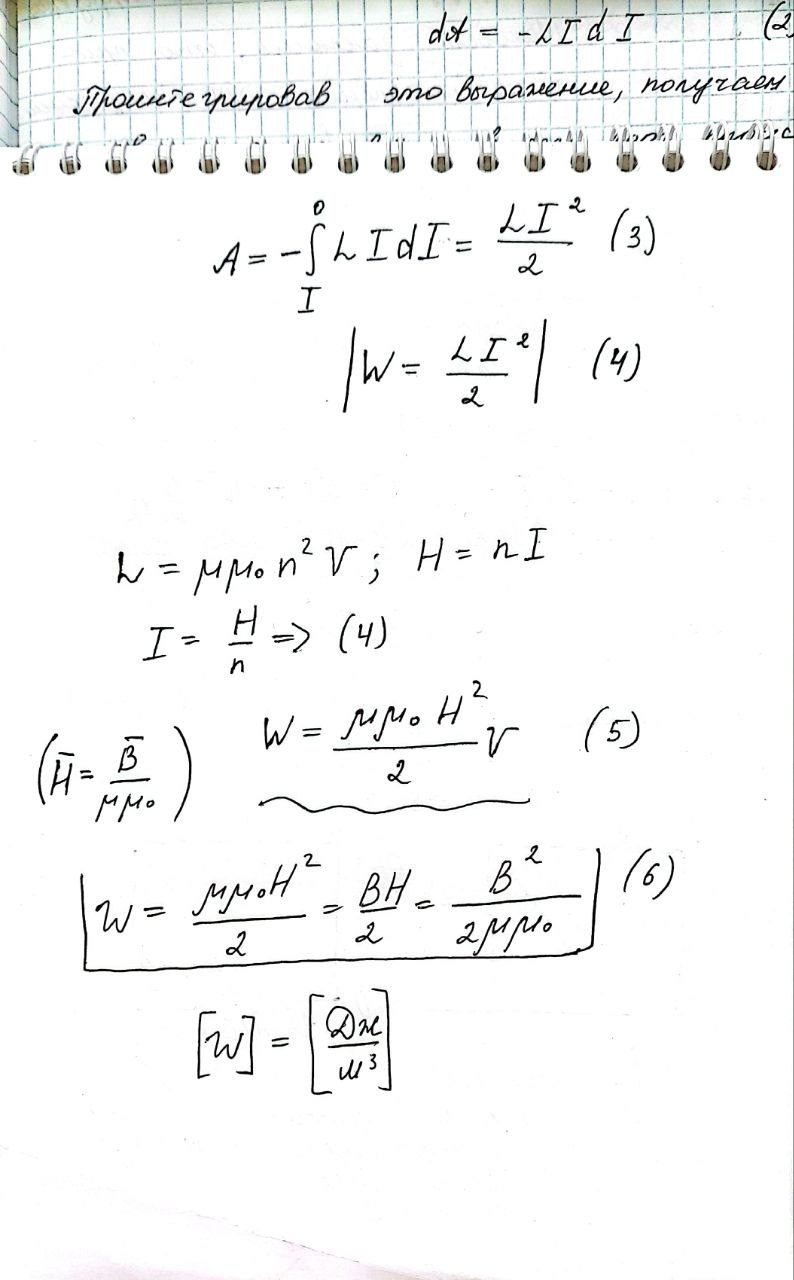 dA = -LIdI (2
Проинтегрировав это выражение, получаем
A = -∫_I^0 LIdI = LI²/2 (3)
|W = LI²/2| (4)
L = μμ₀n²V; H = nI
I = H/n => (4)
(H̄ = B̄/μμ₀) W = μμ₀H²/2 V (5)
|w = μμ₀H²/2 = BH/2 = B²/2μμ₀| (6)
[w] = [Дж/м³]